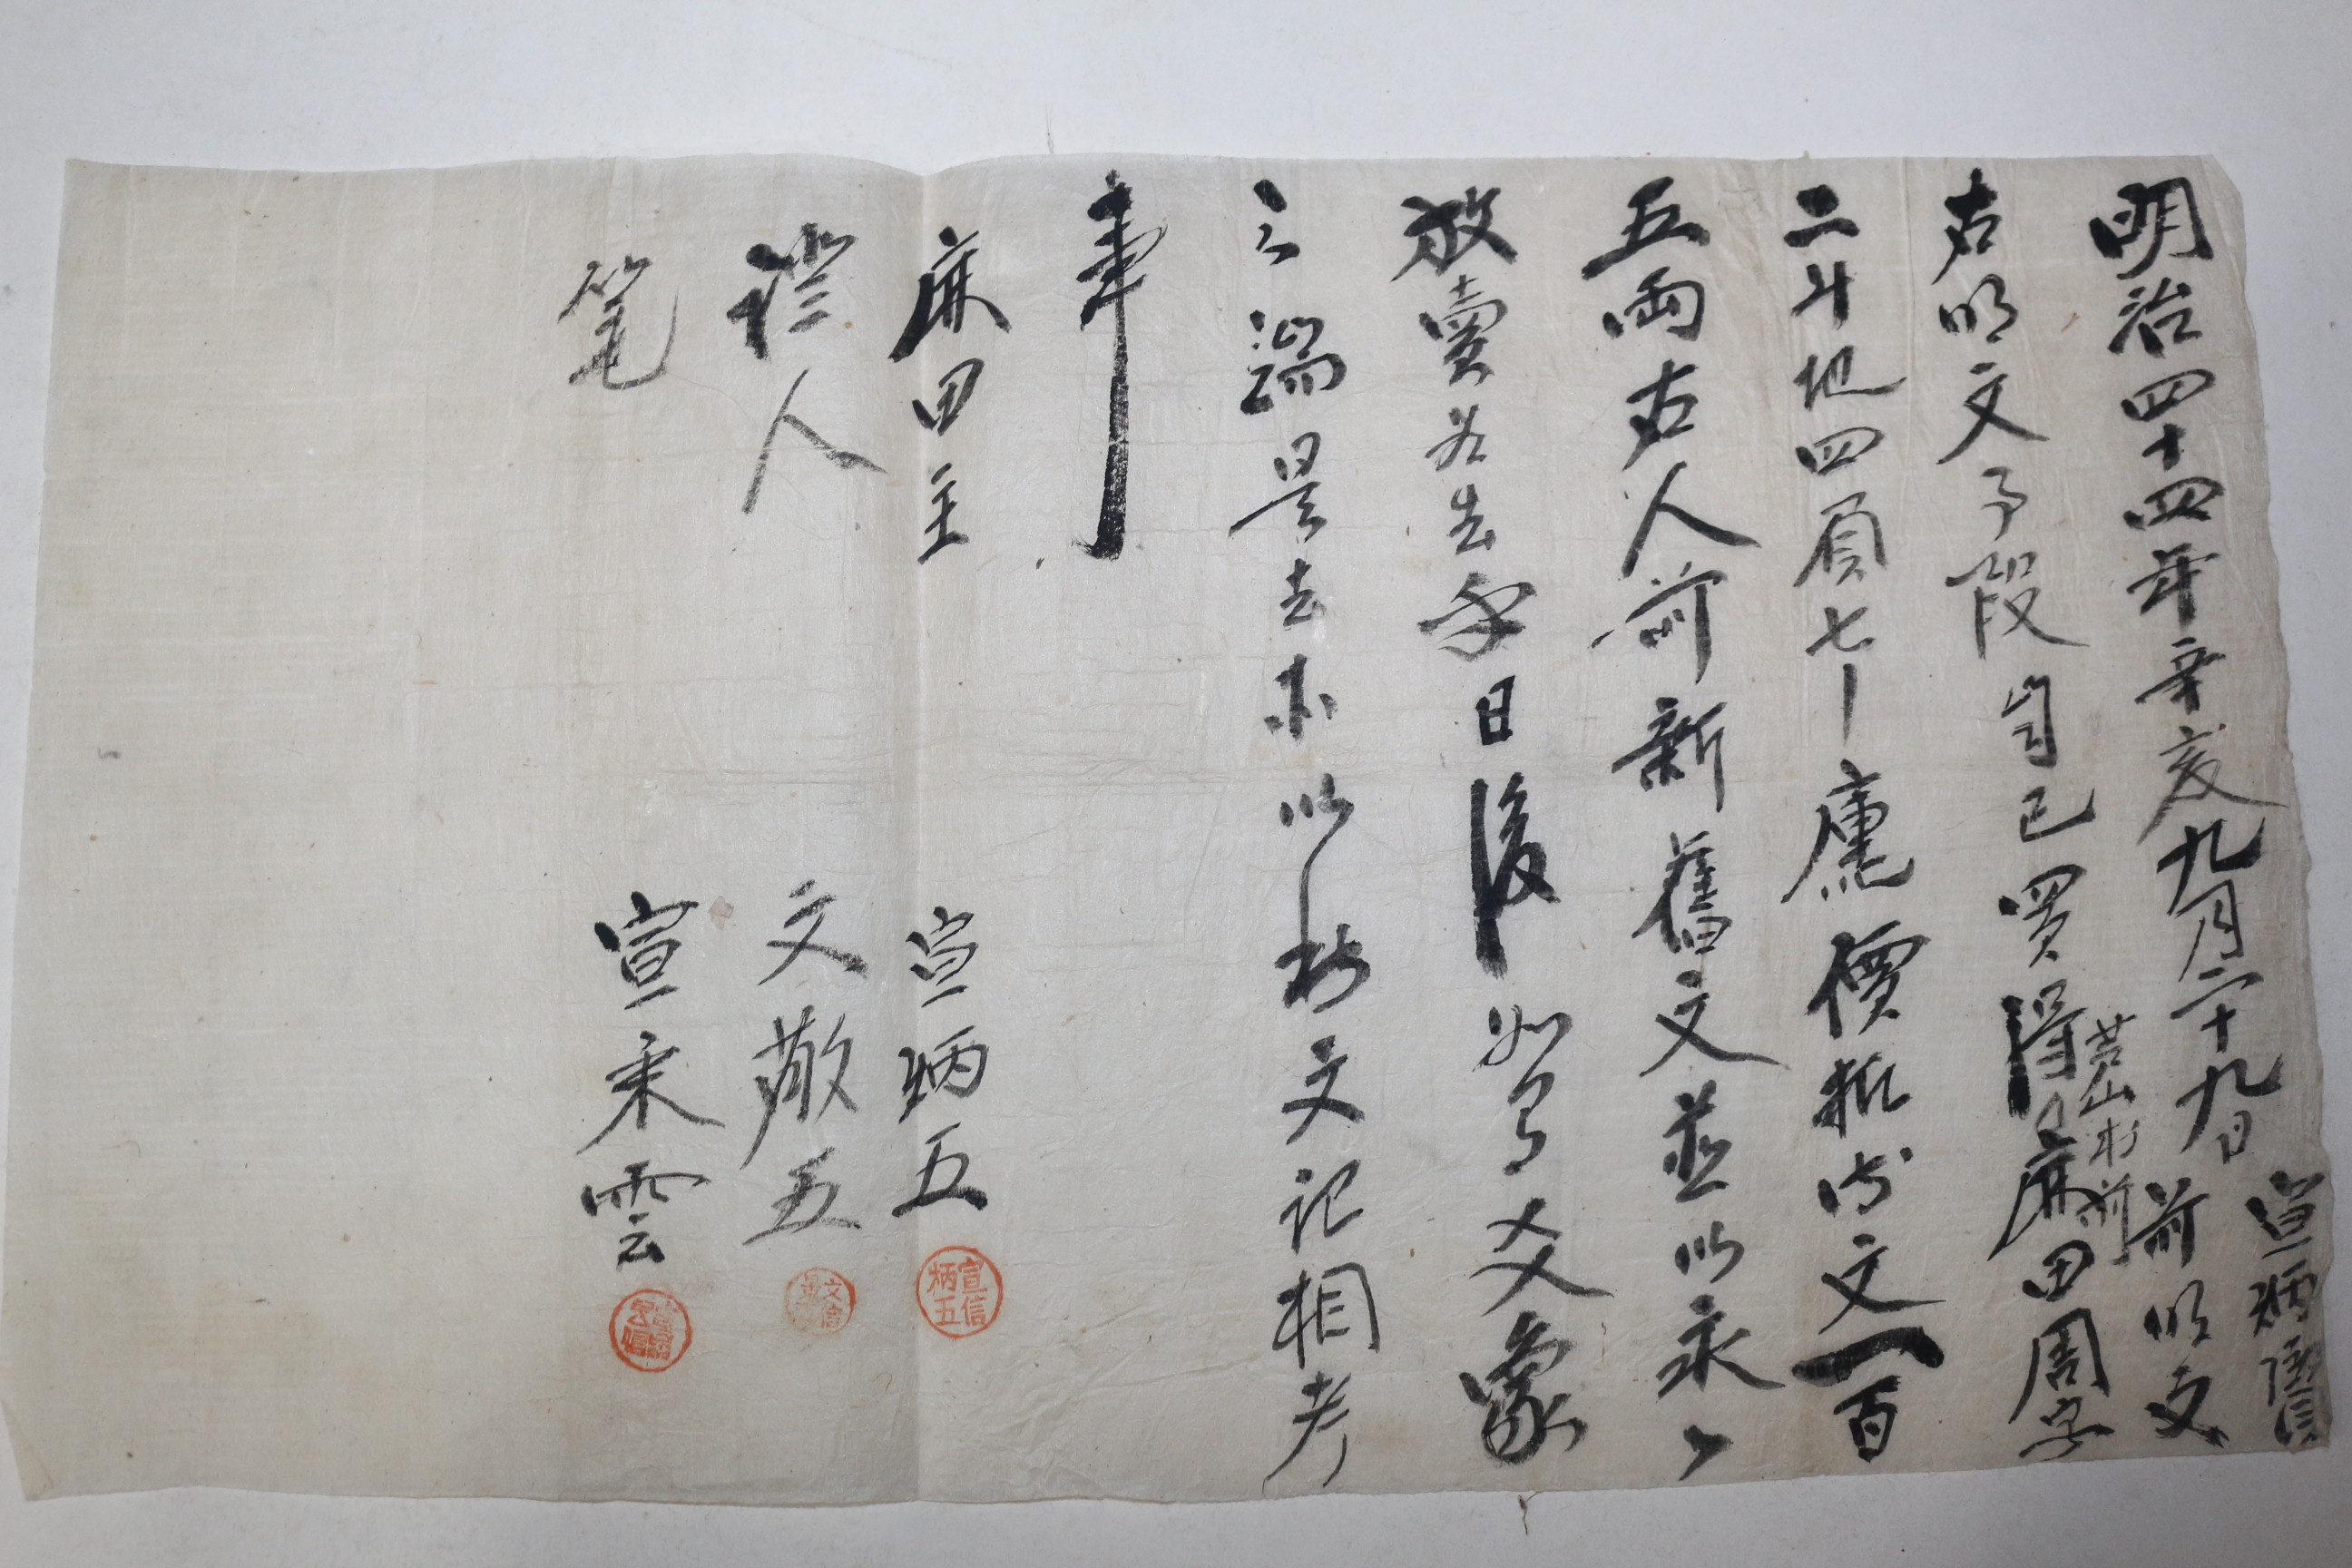 明治四十四年辛亥九月二十九日宣炳信前明文
右明文事段自己買得麻田周字
芦山村前
二斗地四負七卜廤價折价文一百
五兩右人前新舊文並以永〻
放賣為去乎日後如有爻象
之端是去亦以此文記相考
事
麻田主 宣炳五
證人 文敬五
笔 宣秉雲
宣信炳五